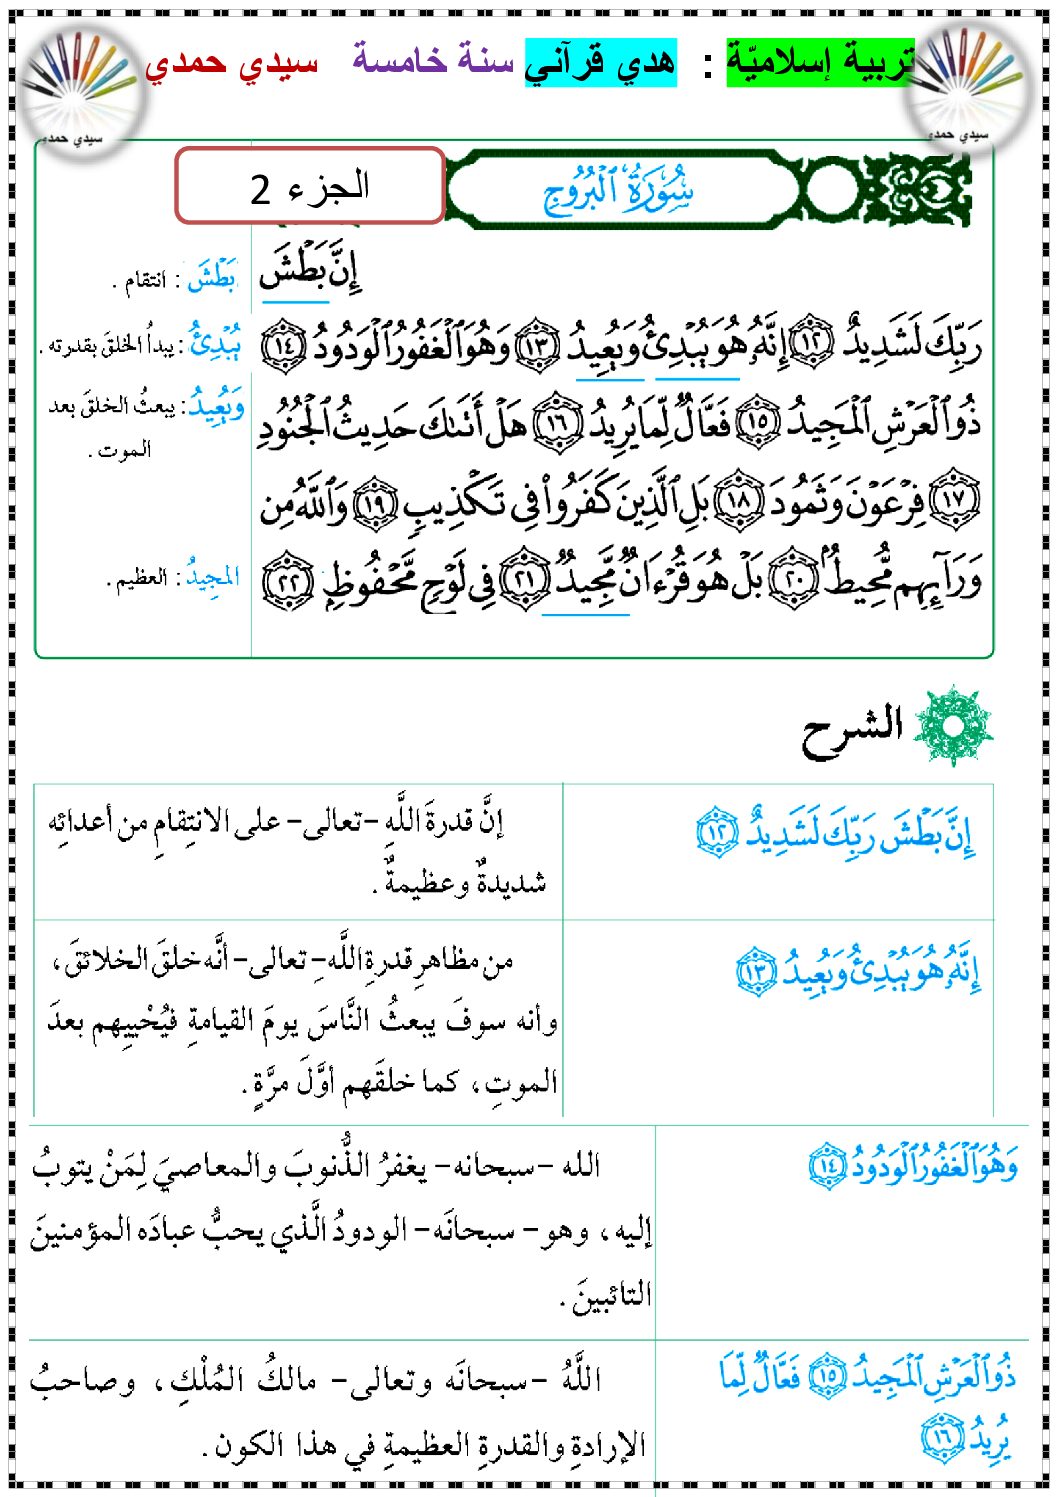 تربية إسلاميّة : هدي قرآني سنة خامسة سيدي حمدي
سيدي حمدي
سيدي حمدي
سُورَةُ الْبُرُوجِ
الجزء 2
إِنَّ بَطْشَ
رَبِّكَ لَشَدِيدٌ ١٢ إِنَّهُۥ هُوَ يُبْدِئُ وَيُعِيدُ ١٣ وَهُوَ الْغَفُورُ الْوَدُودُ ١٤
ذُو الْعَرْشِ الْمَجِيدُ ١٥ فَعَّالٌ لِّمَا يُرِيدُ ١٦ هَلْ أَتَىٰكَ حَدِيثُ الْجُنُودِ
١٧ فِرْعَوْنَ وَثَمُودَ ١٨ بَلِ الَّذِينَ كَفَرُوا۟ فِي تَكْذِيبٍ ١٩ وَاللَّهُ مِن
وَرَآئِهِم مُّحِيطٌ ٢٠ بَلْ هُوَ قُرْءَانٌ مَّجِيدٌ ٢١ فِي لَوْحٍ مَّحْفُوظٍ ٢٢
بَطْشَ : انتقام .
يُبْدِئُ : يبدأُ الخلقَ بقدرته .
وَيُعِيدُ : يبعثُ الخلقَ بعد
الموت .
المجِيدُ : العظيم .
الشرح
إِنَّ بَطْشَ رَبِّكَ لَشَدِيدٌ ١٢
إنَّ قدرةَ اللَّهِ -تعالى- على الانتِقامِ من أعدائِه
شديدةٌ وعظيمةٌ .
إِنَّهُۥ هُوَ يُبْدِئُ وَيُعِيدُ ١٣
من مظاهرِ قدرةِ اللَّهِ- تعالى- أنَّه خلقَ الخلائقَ،
وأنه سوفَ يبعثُ النَّاسَ يومَ القيامةِ فيُحْيِيهم بعدَ
الموتِ، كما خلقَهم أوَّلَ مرَّةٍ .
وَهُوَ الْغَفُورُ الْوَدُودُ ١٤
الله -سبحانه- يغفرُ الذُّنوبَ والمعاصيَ لِمَنْ يتوبُ
إليه، وهو- سبحانَه- الودودُ الَّذي يحبُّ عبادَه المؤمنينَ
التائبينَ .
ذُو الْعَرْشِ الْمَجِيدُ ١٥ فَعَّالٌ لِّمَا
يُرِيدُ ١٦
اللَّهُ -سبحانَه وتعالى- مالكُ المُلْكِ، وصاحبُ
الإرادةِ والقدرةِ العظيمةِ في هذا الكون .